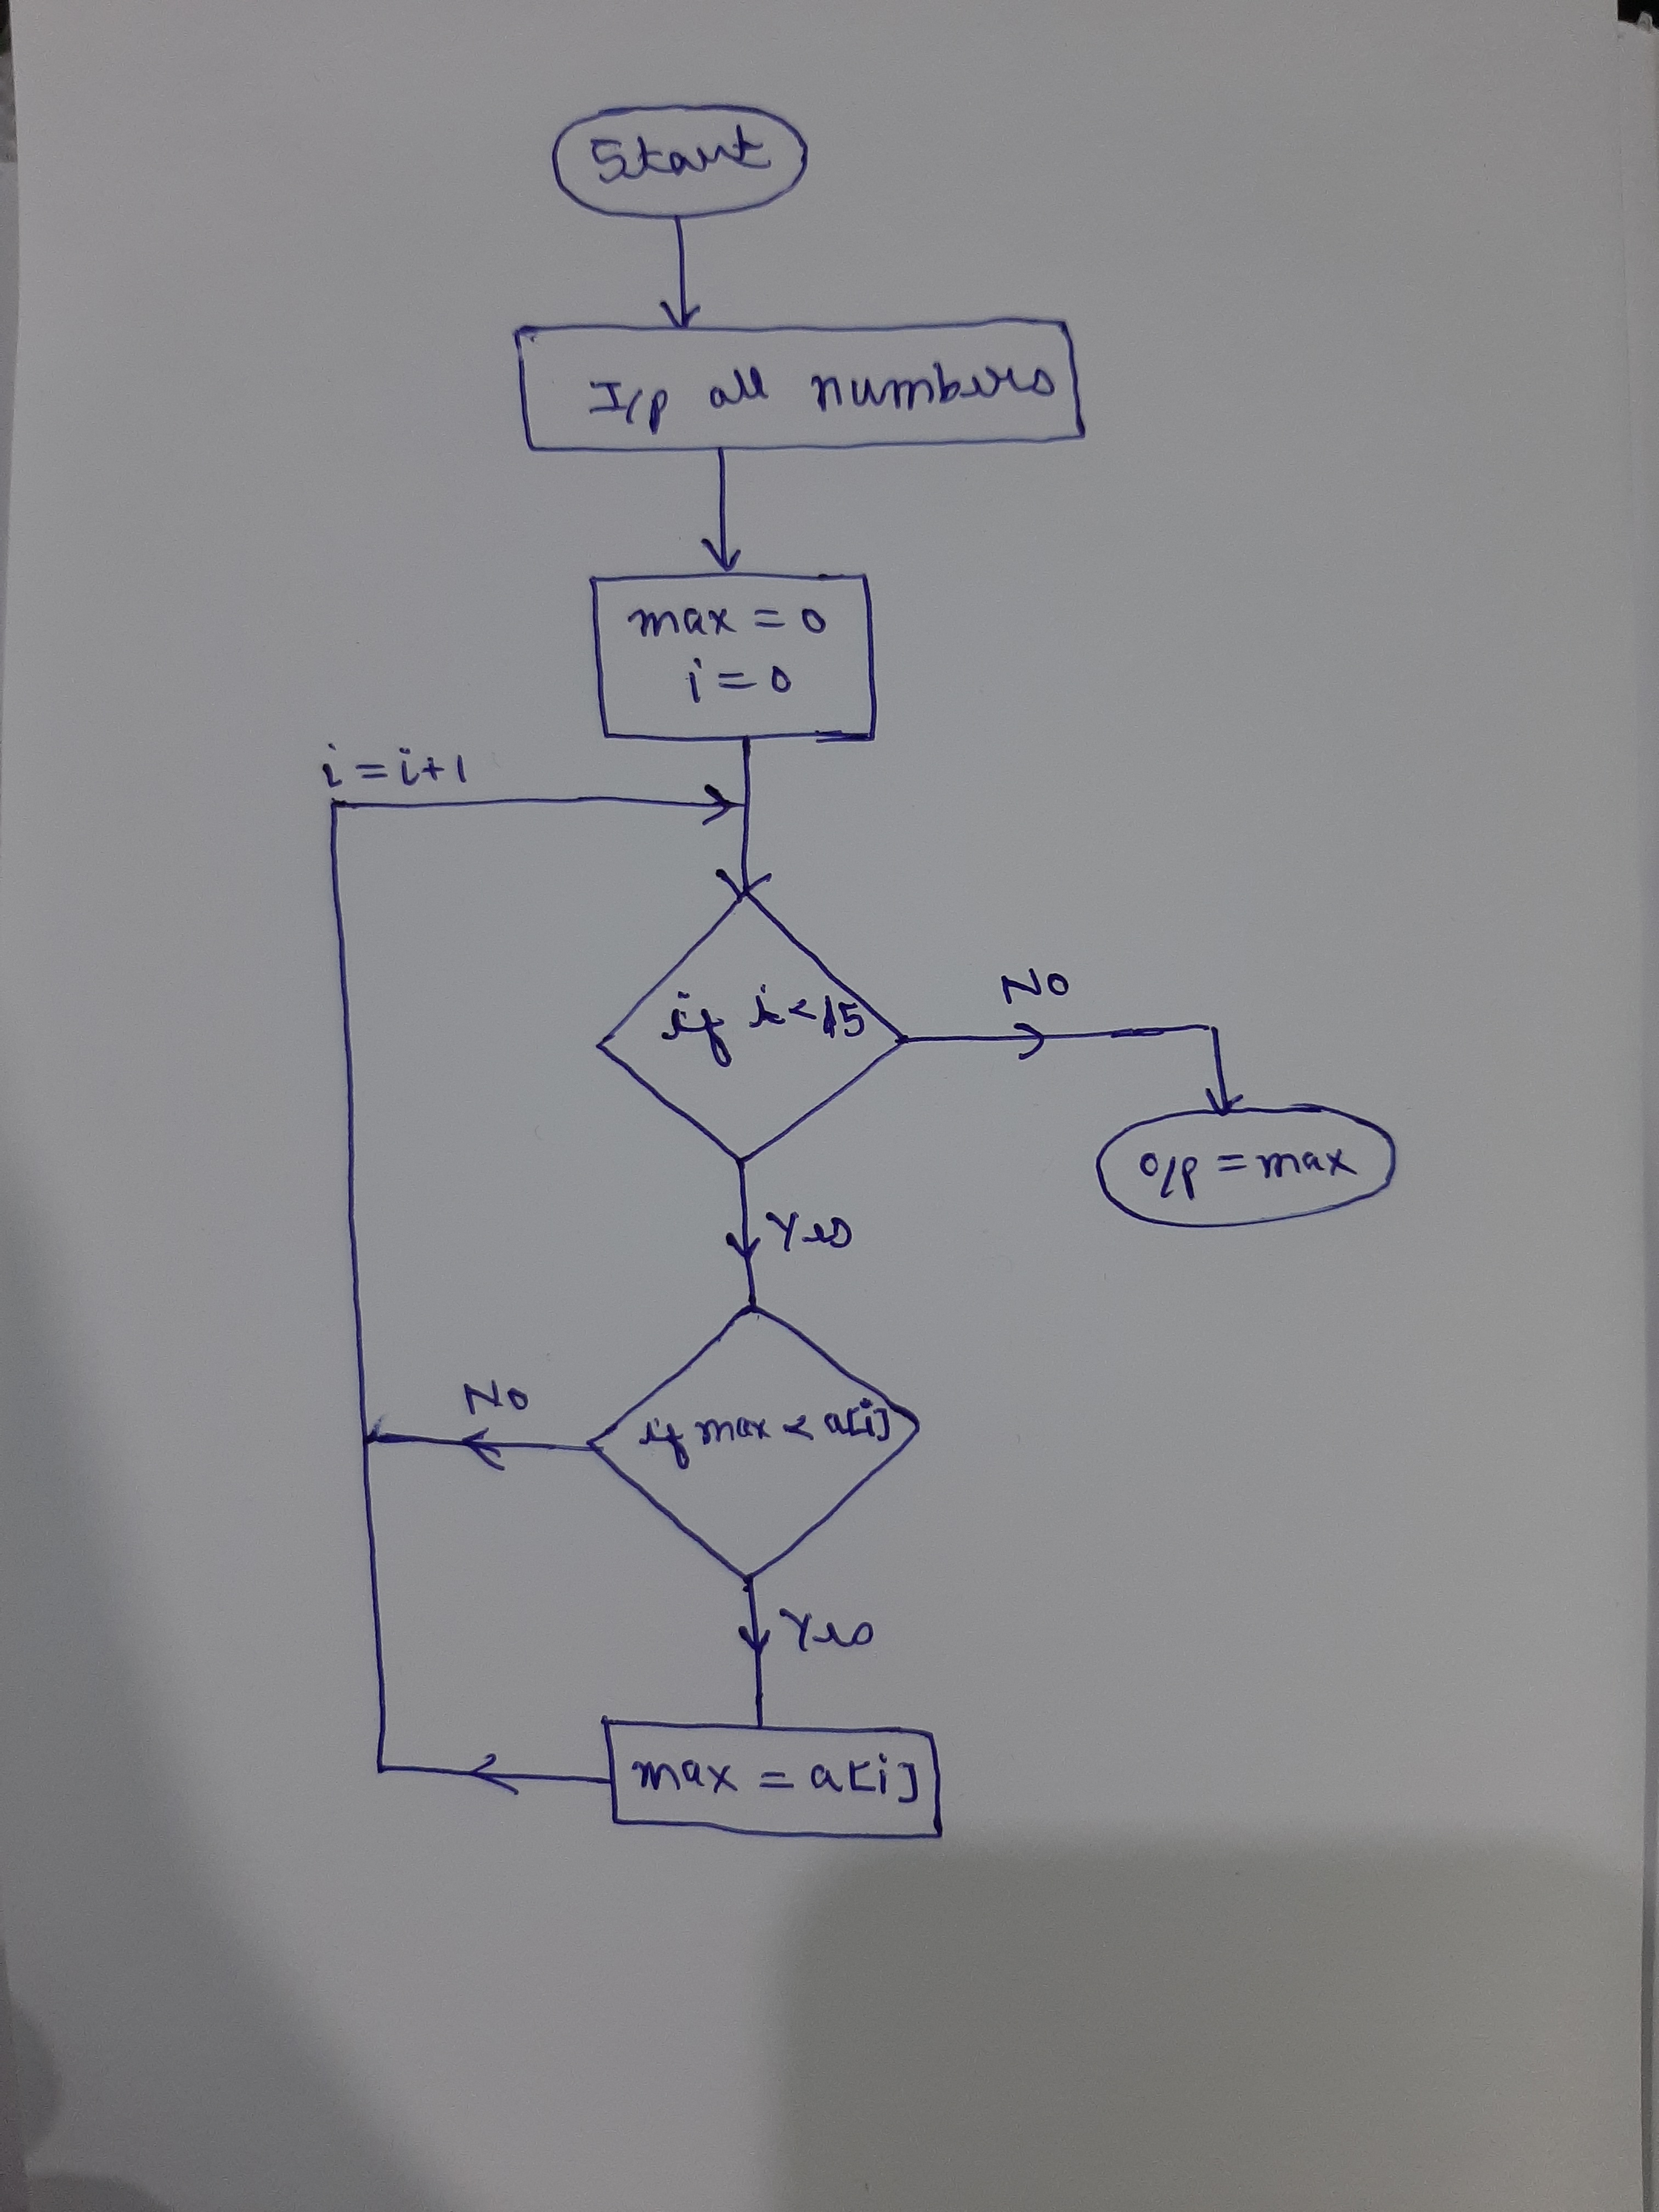 Start
I/p all numbers
max = 0
i = 0
i = i+1
if i < 15
No
o/p = max
Yes
if max < a[i]
No
Yes
max = a[i]